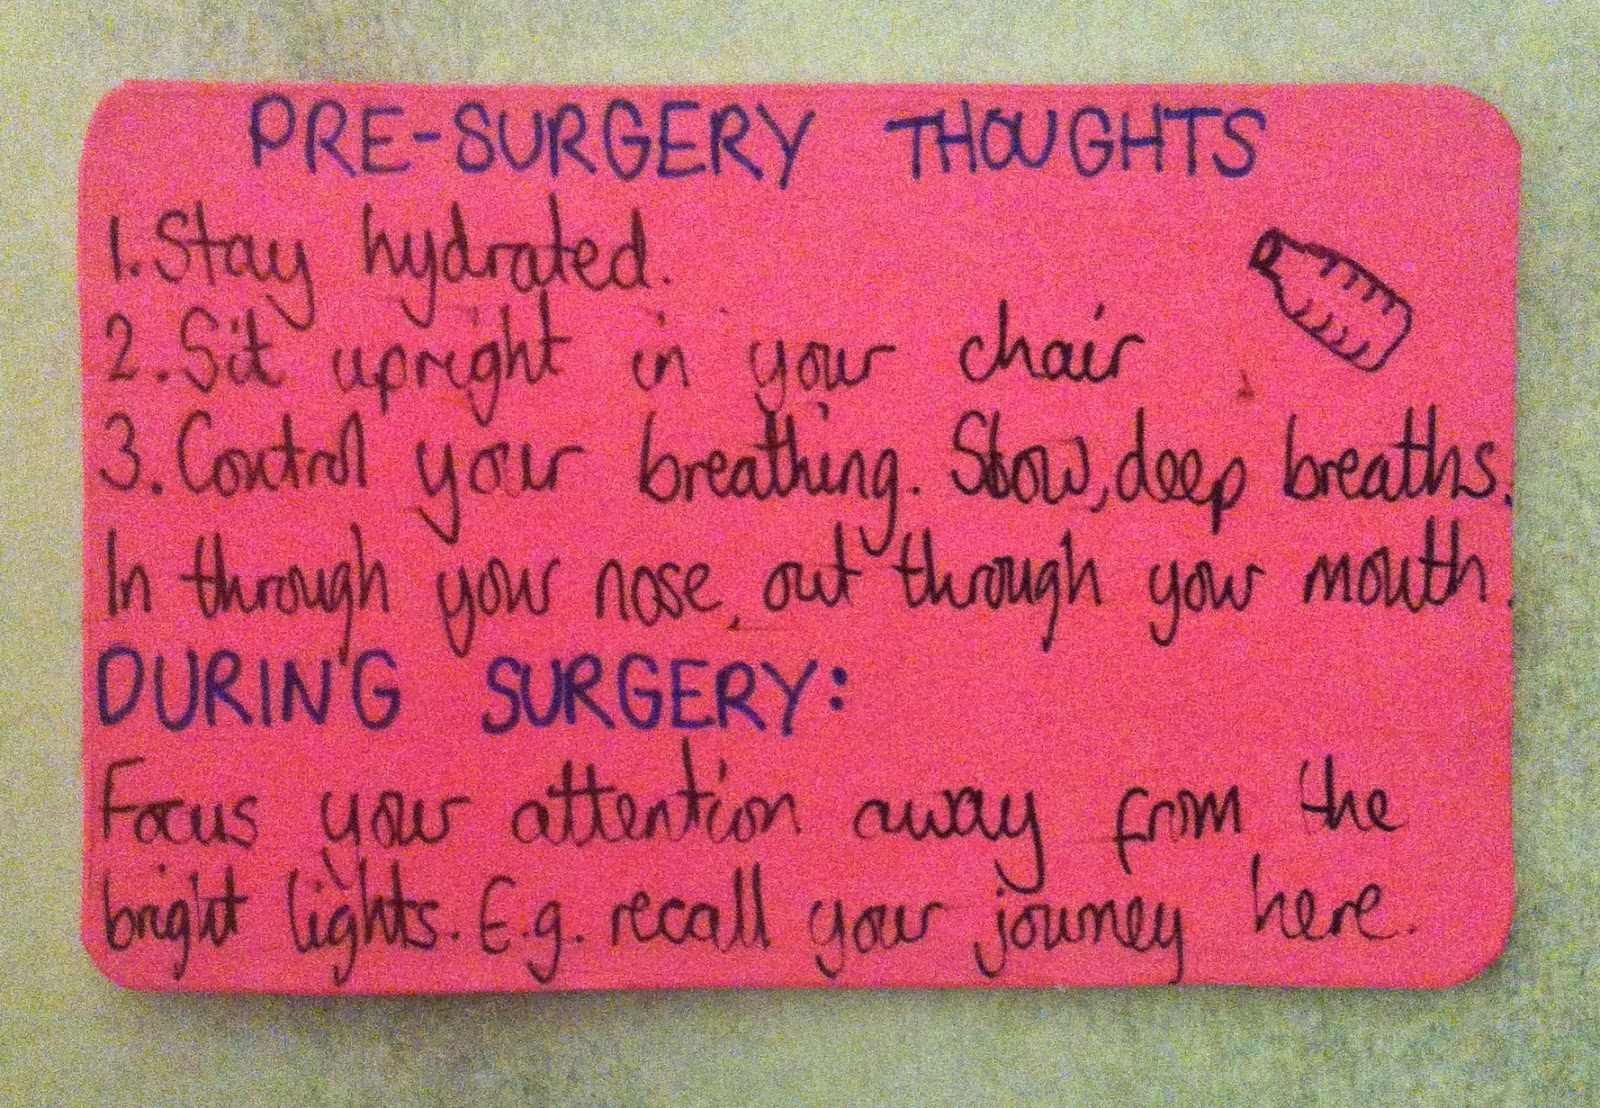 PRE-SURGERY THOUGHTS
1. Stay hydrated.
2. Sit upright in your chair
3. Control your breathing. Slow, deep breaths.
In through your nose, out through your mouth.
DURING SURGERY:
Focus your attention away from the
bright lights. E.g. recall your journey here.